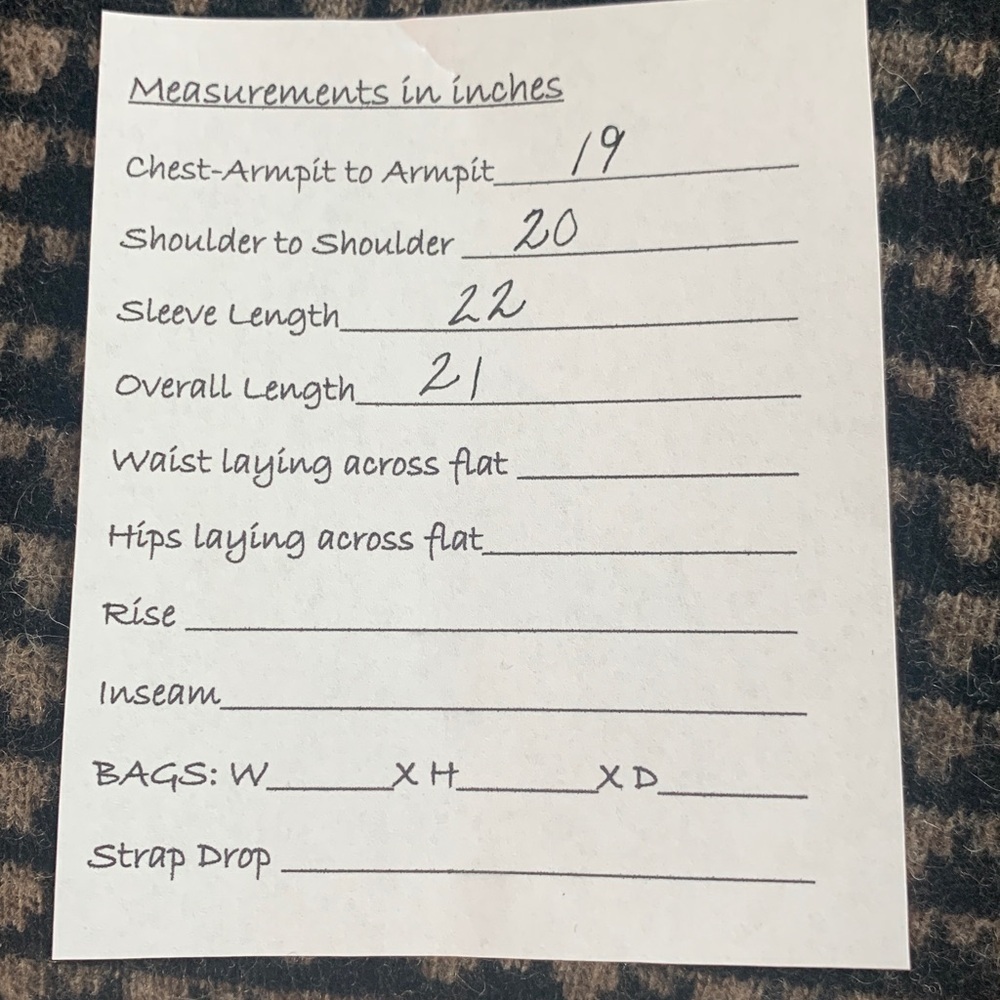 Measurements in inches
Chest-Armpit to Armpit 19
Shoulder to Shoulder 20
Sleeve Length 22
Overall Length 21
Waist laying across flat
Hips laying across flat
Rise
Inseam
BAGS: W______X H______X D______
Strap Drop